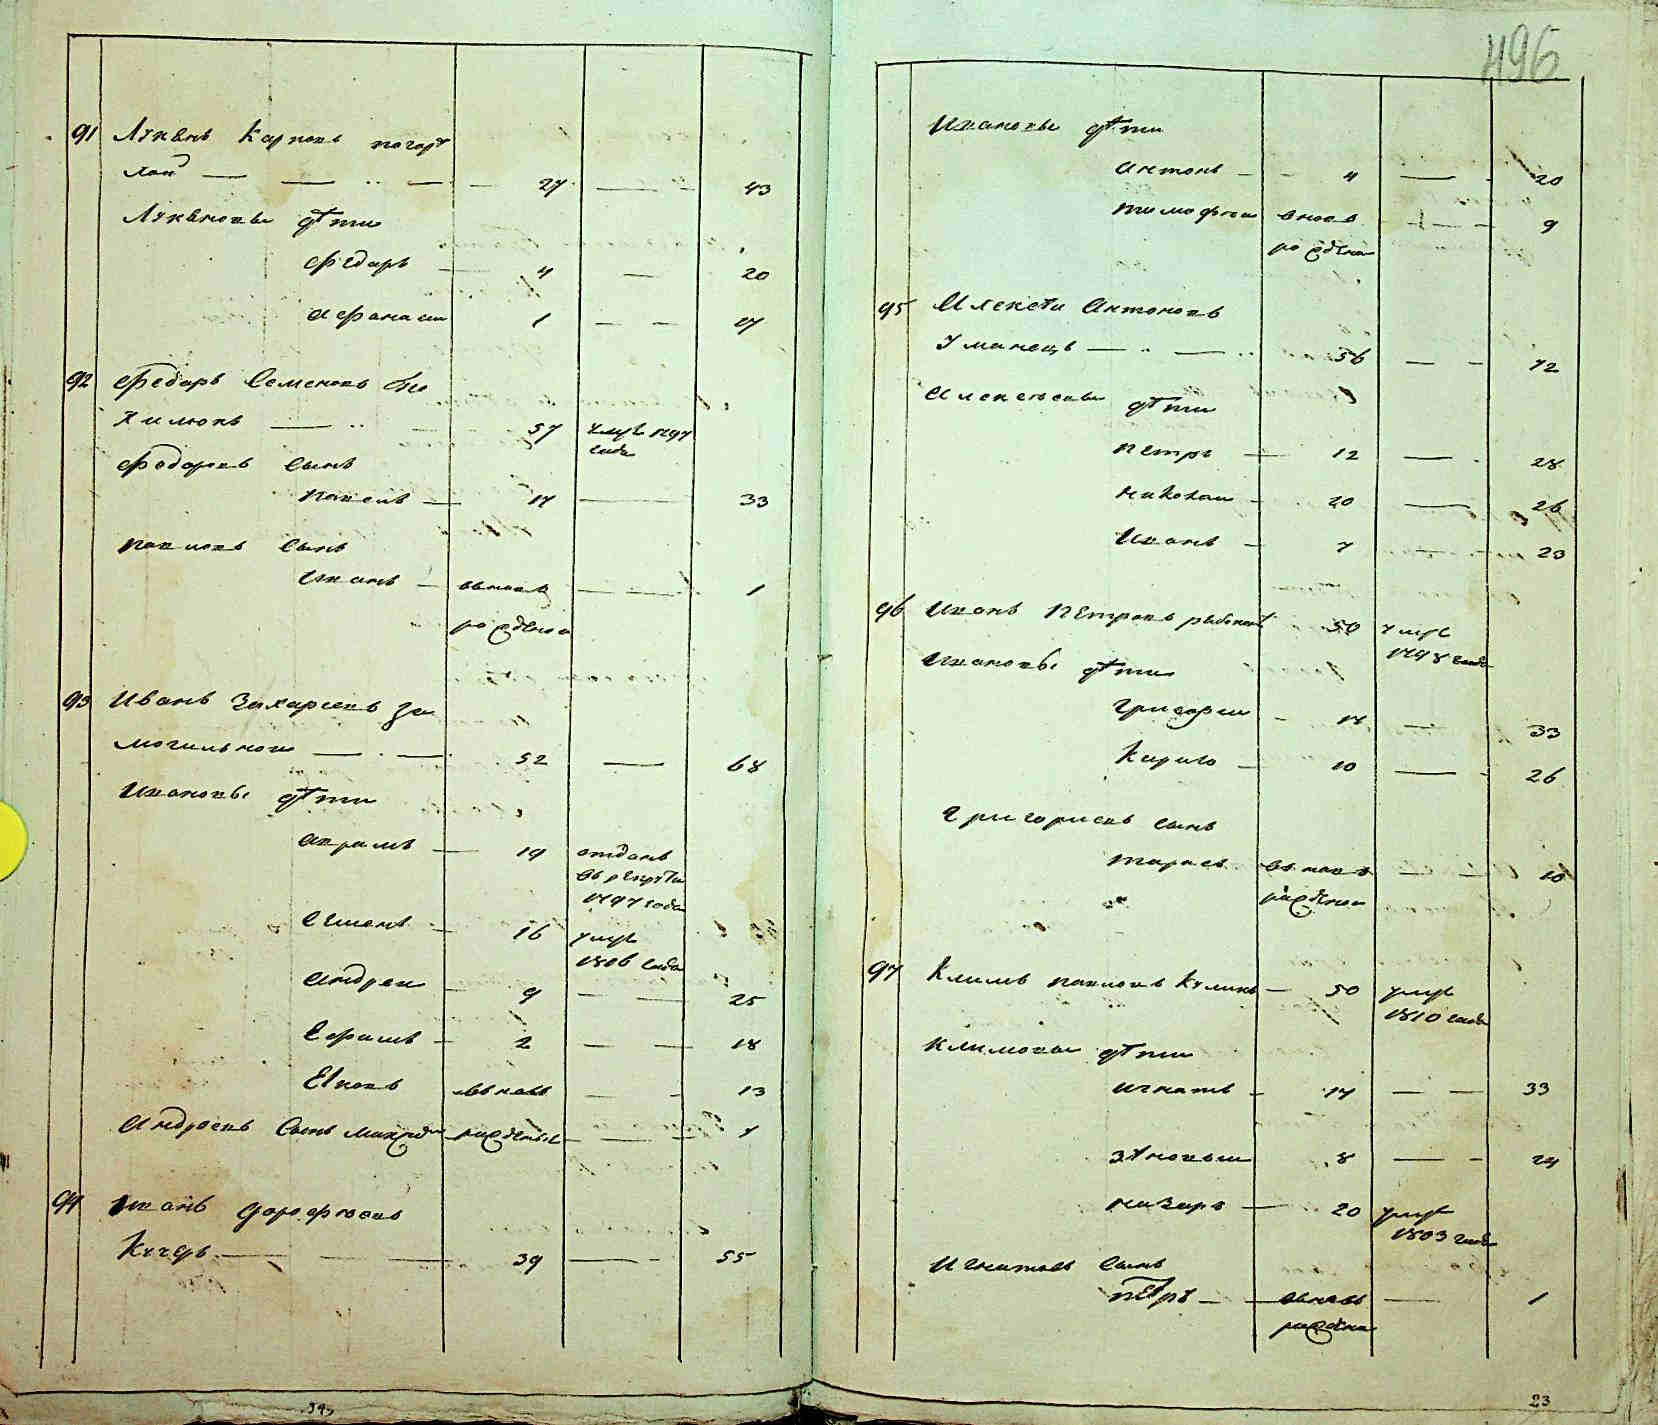 91 Лукянъ Карповъ погор
лой 27 43
Лукяновы дѣти
Федоръ 4 20
Афанасии 1 17
92 Федоръ Семеновъ
57 умре 1797
года
Федоровъ сынъ
Павелъ 17 33
Павловъ сынъ
Иванъ вновь 1
рожденой
93 Иванъ Захариевъ За
могильной 52 68
Ивановы дѣти
Аврамъ 19 отданъ
въ рекруты
1797 года
Семенъ 16 умре
1806 года
Андреи 9 25
Ефимъ 2 18
Яковъ вновь 13
Андреевъ сынъ рожденые 1
94 Иванъ Дорофѣевъ
39 55
496
Ивановы дѣти
Антонъ 4 20
Тимофеи вновь 9
рожденои
95 Алексѣи Антоновъ
Уманецъ 56 72
Алексѣевы дѣти
Петръ 12 28
Николаи 20 26
Иванъ 7 23
96 Иванъ Петровъ 50 умре
1798 года
Ивановы дѣти
Григории 17 33
Кирило 10 26
Григориевъ сынъ
Тарасъ вновь 10
рожденои
97 Климъ Павловъ Куликъ 50 умре
1810 года
Климовы дѣти
Игнатъ 17 33
Зѣновии 8 24
Назаръ 20 умре
1803 года
Игнатовъ сынъ
Петръ вновь 1
рожденъ
23